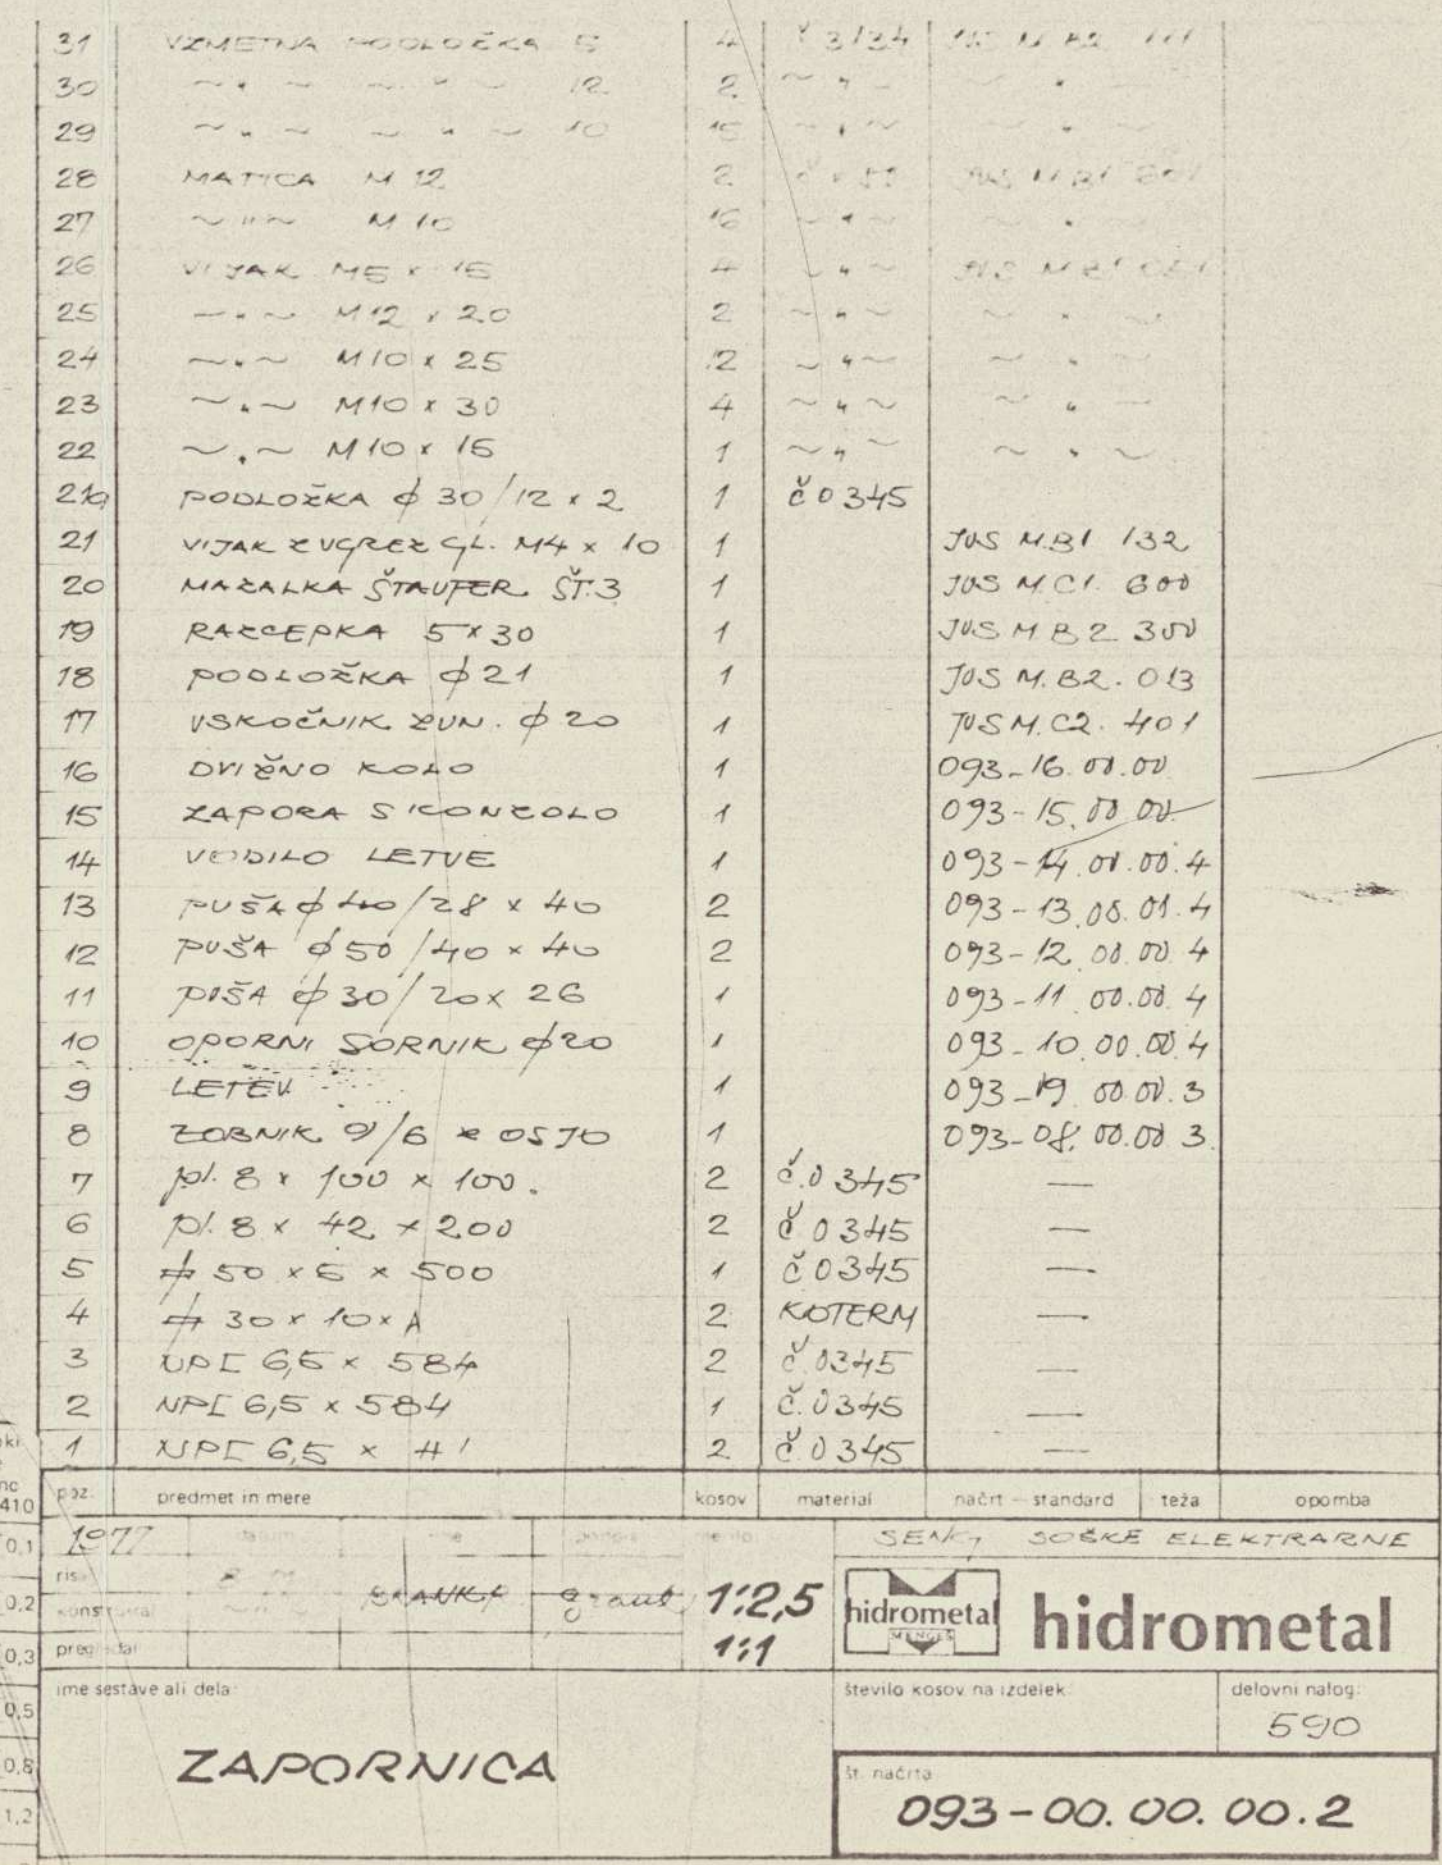 31 VZMETNA PODLOŽKA 5 4 Č 3134 M B2 111
30 ~ " ~ ~ " ~ 12 2 ~ " ~ "
29 ~ " ~ ~ " ~ 10 ~ " ~ "
28 MATICA M 12 2 JUS M B1
27 ~ " ~ M 10 16 ~ " ~ "
26 VIJAK M5 x 15 4 ~ " ~ JUS M B1
25 ~ " ~ M12 x 20 2 ~ " ~ ~ " ~
24 ~ " ~ M10 x 25 12 ~ " ~ ~ " ~
23 ~ " ~ M10 x 30 4 ~ " ~ ~ " ~
22 ~ " ~ M10 x 15 1 ~ " ~ ~ " ~
21a PODLOŽKA φ 30/12 x 2 1 Č 0345
21 VIJAK Z UGREZ GL. M4 x 10 1 JUS M.B1 132
20 MAZALKA ŠTAUFER ŠT.3 1 JUS M.C1. 600
19 RAZCEPKA 5 x 30 1 JUS M B2 300
18 PODLOŽKA φ 21 1 JUS M.B2. 013
17 VSKOČNIK ZUN. φ 20 1 JUS M.C2. 401
16 DVIŽNO KOLO 1 093-16.00.00
15 ZAPORA S KONZOLO 1 093-15.00.00
14 VODILO LETVE 1 093-14.01.00.4
13 PUŠA φ 40/28 x 40 2 093-13.00.01.4
12 PUŠA φ 50/40 x 40 2 093-12.00.00.4
11 PUŠA φ 30/20 x 26 1 093-11.00.00.4
10 OPORNI SORNIK φ20 1 093-10.00.00.4
9 LETEV 1 093-19.00.00.3
8 ZOBNIK 9/6 Z OSJO 1 093-08.00.00.3
7 pl. 8 x 100 x 100. 2 Č.0345 —
6 pl. 8 x 42 x 200 2 Č 0345 —
5 50 x 6 x 500 1 Č 0345 —
4 30 x 10 x A 2 KOTERM —
3 NP[ 6,5 x 584 2 Č.0345 —
2 NP[ 6,5 x 584 1 Č.0345 —
1 NP[ 6,5 x H' 2 Č.0345 —
poz. predmet in mere kosov material načrt — standard teža opomba
410
0,1
0,2
0,3
0,5
0,8
1,2
1977 datum ime podpis merilo
ris.
konstruiral BRANKA
pregledal
1:2,5
1:1
SENG SOŠKE ELEKTRARNE
hidrometal
MENGEŠ
hidrometal
ime sestave ali dela:
ZAPORNICA
število kosov na izdelek:
delovni nalog:
590
št. načrta
093-00.00.00.2